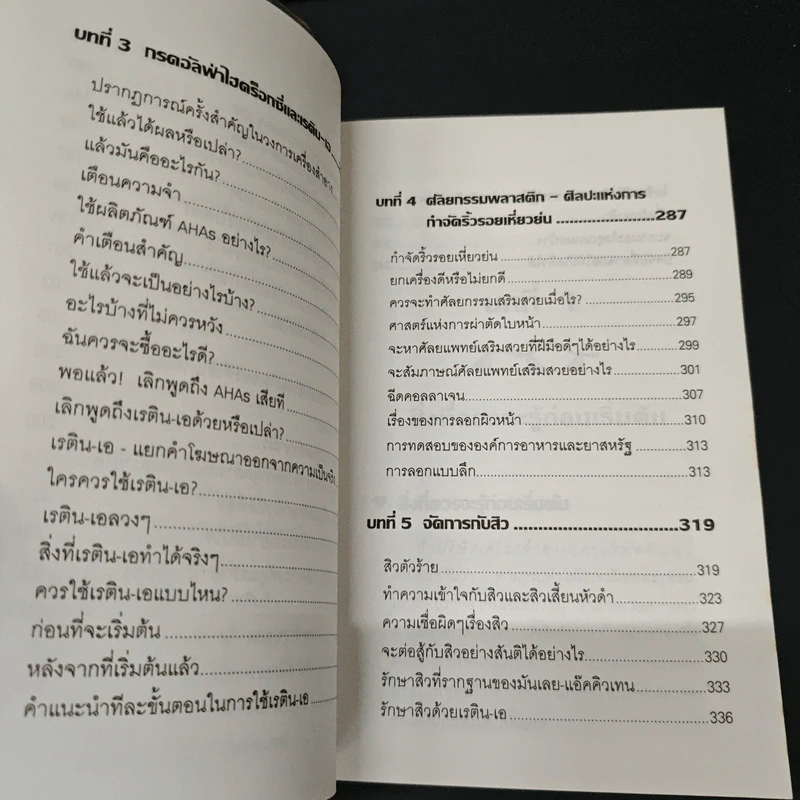 บทที่ 3 กรดอัลฟ่าไฮดร็อกซี่และเรติน-เอ
ปรากฏการณ์ครั้งสำคัญในวงการเครื่องสำอาง
ใช้แล้วได้ผลหรือเปล่า?
แล้วมันคืออะไรกัน?
เตือนความจำ
ใช้ผลิตภัณฑ์ AHAs อย่างไร?
คำเตือนสำคัญ
ใช้แล้วจะเป็นอย่างไรบ้าง?
อะไรบ้างที่ไม่ควรหวัง
ฉันควรจะซื้ออะไรดี?
พอแล้ว! เลิกพูดถึง AHAs เสียที
เลิกพูดถึงเรติน-เอด้วยหรือเปล่า?
เรติน-เอ - แยกคำโฆษณาออกจากความเป็นจริง
ใครควรใช้เรติน-เอ?
เรติน-เอลวงๆ
สิ่งที่เรติน-เอทำได้จริงๆ
ควรใช้เรติน-เอแบบไหน?
ก่อนที่จะเริ่มต้น
หลังจากที่เริ่มต้นแล้ว
คำแนะนำทีละขั้นตอนในการใช้เรติน-เอ
บทที่ 4 ศัลยกรรมพลาสติก - ศิลปะแห่งการ
กำจัดริ้วรอยเหี่ยวย่น 287
กำจัดริ้วรอยเหี่ยวย่น 287
ยกเครื่องดีหรือไม่ยกดี 289
ควรจะทำศัลยกรรมเสริมสวยเมื่อไร? 295
ศาสตร์แห่งการผ่าตัดใบหน้า 297
จะหาศัลยแพทย์เสริมสวยที่ฝีมือดีๆได้อย่างไร 299
จะสัมภาษณ์ศัลยแพทย์เสริมสวยอย่างไร 301
ฉีดคอลลาเจน 307
เรื่องของการลอกผิวหน้า 310
การทดสอบขององค์การอาหารและยาสหรัฐ 313
การลอกแบบลึก 313
บทที่ 5 จัดการกับสิว 319
สิวตัวร้าย 319
ทำความเข้าใจกับสิวและสิวเสี้ยนหัวดำ 323
ความเชื่อผิดๆเรื่องสิว 327
จะต่อสู้กับสิวอย่างสันติได้อย่างไร 330
รักษาสิวที่รากฐานของมันเลย-แอ๊คคิวเทน 333
รักษาสิวด้วยเรติน-เอ 336